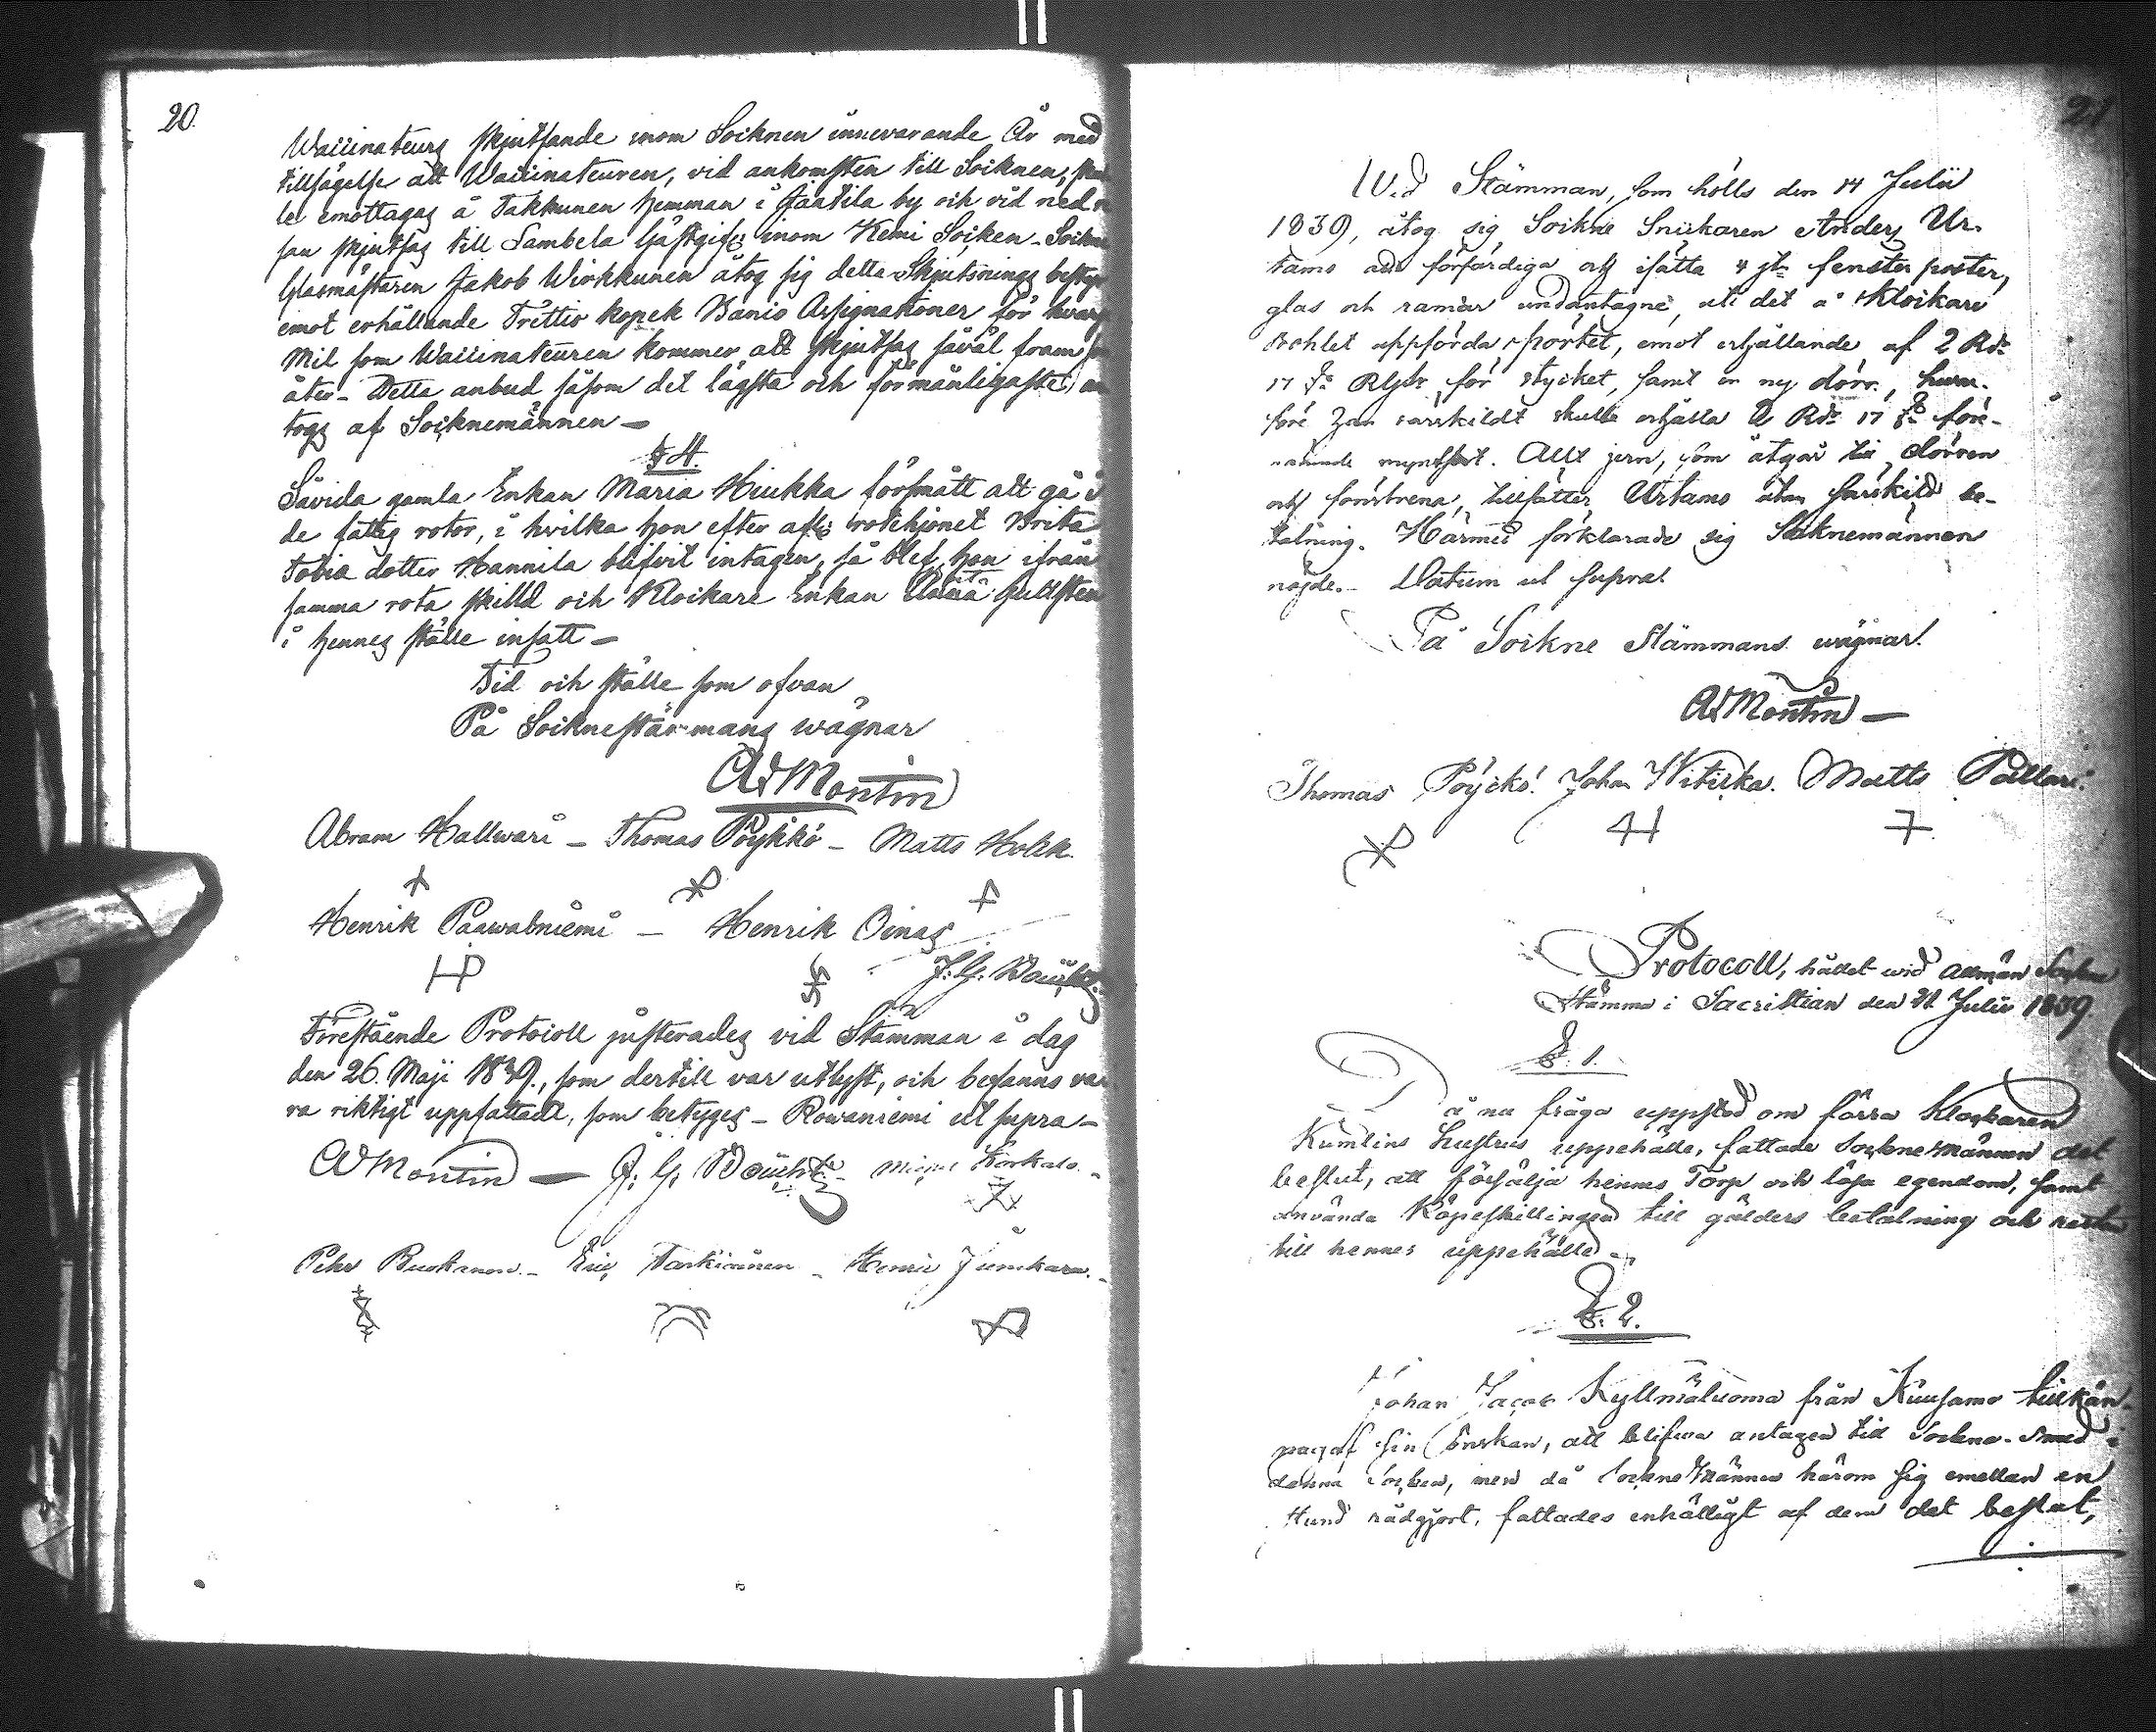 20.
Waccinateurs skjutsande inom Socknen innevarande År med
tillsägelse att Waccinateuren, vid ankomsten till Socknen, skul
le emottagas å Takkunen hemman i Jaatila by och vid ned re
san skjutsas till Lambela Gästgifi inom Kemi Socken - Sockne
Glasmästaren Jakob Wirkkunen åtog sig detta Skjutsnings bestyr
emot erhållande Trettio kopek Banco Assignationer för hvarje
Mil som Waccinateuren kommer att skjutsas såväl fram som
åter - Detta anbud såsom det lägsta och förmånligaste an
togs af Socknemännen -
§ 4.
Såvida gamla Enkan Maria Hiukka försmått att gå i
de fattig rotor, i hvilka hon efter afl. rotehjonet Brita
Tobia dotter Hannila blifvit intagen, så blef hon ifrån
samma rota skilld och Klockare Enkan Gullsten
i hennes ställe insatt -
Tid och ställe som ofvan
På Socknestämmans wägnar
AdMontin
Abram Hallwari - Thomas Pöykkö - Matts
Henrik Paawalniemi - Henrik Oinas
J. G.
Förestående Protocoll justerades vid Stämman i dag
den 26. Maji 1839., som dertill var utlyst, och befanns va
ra riktigt uppfattadt, som betyges - Rowaniemi ut supra -
AdMontin - J. G. Korkalo -
Pehr Ruokanen - Eric Tarkiainen - Henric Jumkara -
21
Wid Stämman, som hölls den 14 Julii
1839, åtog sig Sockne Snickaren Anders Ur-
tams att förfärdiga och isätta 4 st. fenster poster,
glas och ramar undantagne, uti det å Klockare
Bohlet uppförda pörtet, emot erhållande af 2 Rdr
17 s. Rgds för stycket, samt en ny dörr, hvar-
före han särskildt skulle erhålla 2 Rdr 17 s. före-
nämnde myntsort. Allt jern, som åtgår till dörren
och fönstrena, tillsätter Urtams utan särskild be-
talning. Härmed förklarade sig Socknemännen
nöjde. - Datum ut supra.
På Sockne Stämmans wägnar.
AdMontin -
Thomas Pöyckö. Johan Witicka. Matts Pallari.
Protocoll, hållet wid Allmän Sockne
Stämma i Sacristian den 21 Julii 1839.
§. 1.
Då nu fråga uppstod om förra Klockaren
Kumlins hustrus uppehälle, fattade Socknemännen det
beslut, att försälja hennes Torp och lösa egendom, samt
använda Köpeskillingen till gälders betalning och resten
till hennes uppehälle.
§. 2.
Johan Jacob Kyllmäluoma från Kuusamo tillkän-
nagaf sin önskan, att blifwa antagen till Sockne-Smed i
denna Socken, men då Socknemännen härom sig emellan en
stund rådgjort, fattades enhälligt af dem det beslut,